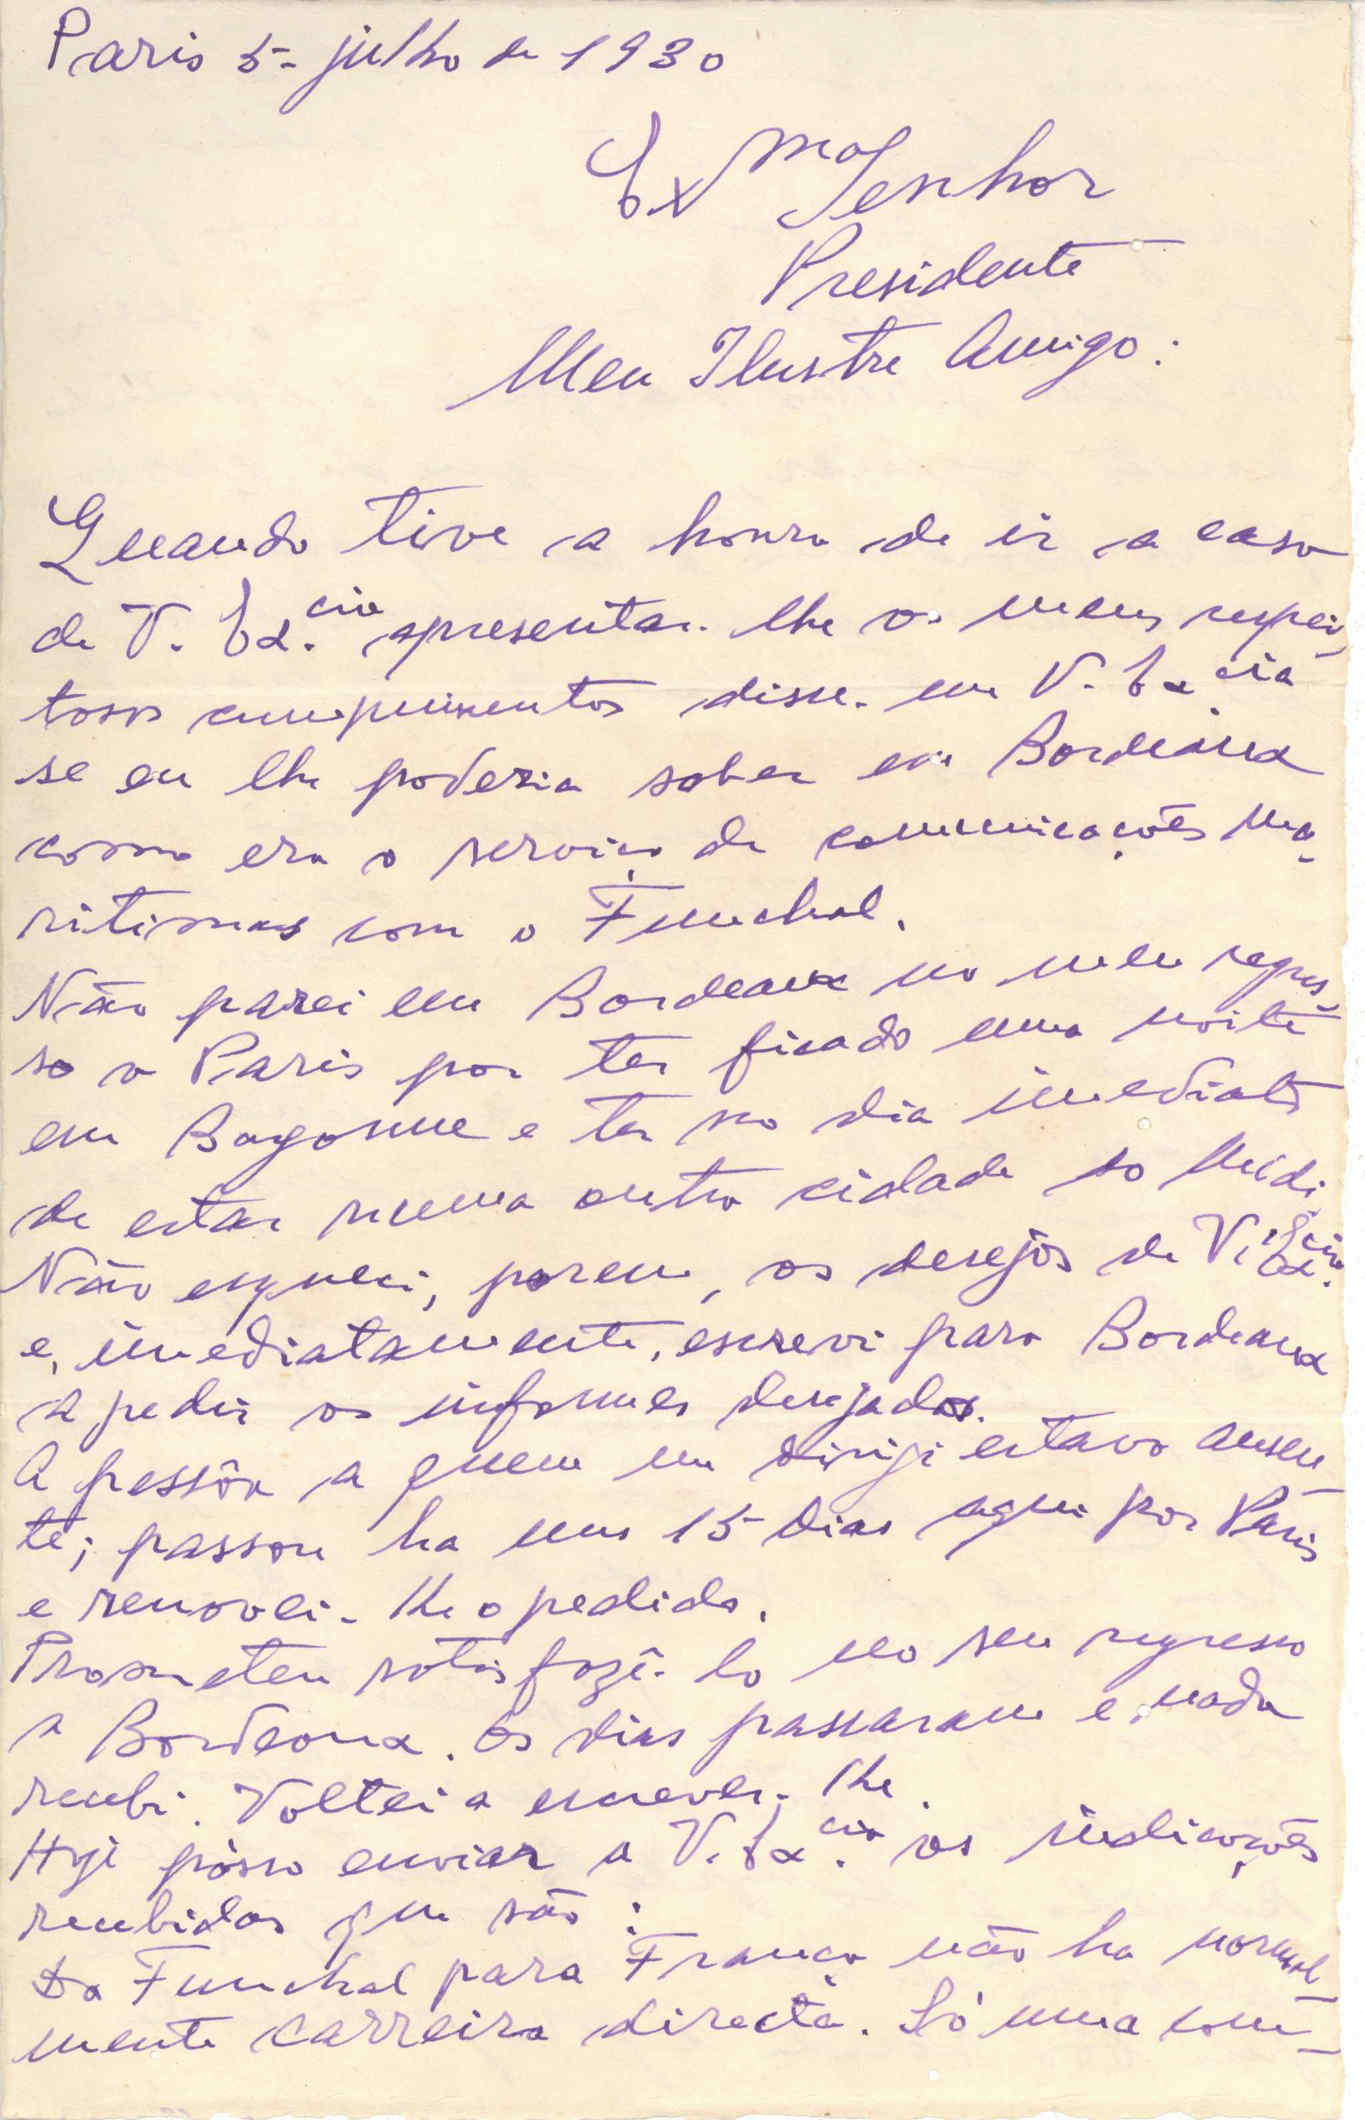 Paris 5- julho de 1930
Exmo Senhor
Presidente
Meu Ilustre Amigo:
Quando tive a honra de ir a casa
de V. Ex.cia apresentar-lhe os meus respei-
tosos cumprimentos disse-me V. Ex.cia
se eu lhe poderia saber em Bordeaux
como era o serviço de comunicações ma-
ritimas com o Funchal.
Não parei em Bordeaux no meu regres-
so a Paris por ter ficado uma noite
em Bayonne e ter no dia imediato
de estar numa outra cidade do Midi.
Não esqueci, porem, os desejos de V. Ex.cia
e, imediatamente, escrevi para Bordeaux
a pedir os informes desejados.
A pessôa a quem me dirigi estava ausen-
te; passou ha uns 15 dias aqui por Paris
e renovei-lhe o pedido.
Prometeu satisfazê-lo no seu regresso
a Bordeaux. Os dias passaram e nada
recebi. Voltei a escrever-lhe.
Hoje pósso enviar a V. Ex.cia as indicações
recebidas que são:
Do Funchal para França não ha normal-
mente carreira directa. Só uma com-